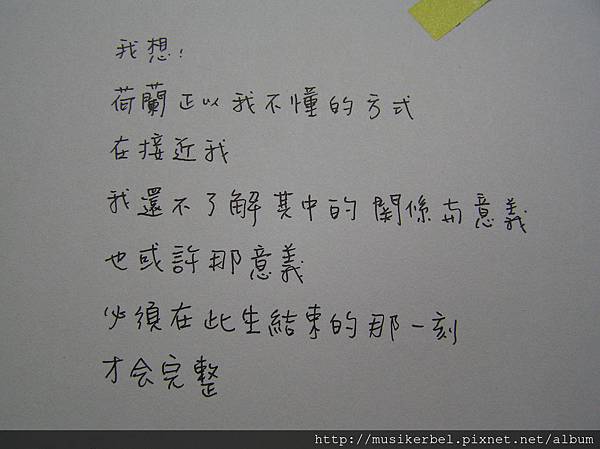 我想，
荷蘭正以我不懂的方式
在接近我
我還不了解其中的關係與意義
也或許那意義
必須在此生結束的那一刻
才会完整
http://musikerbel.pixnet.net/album